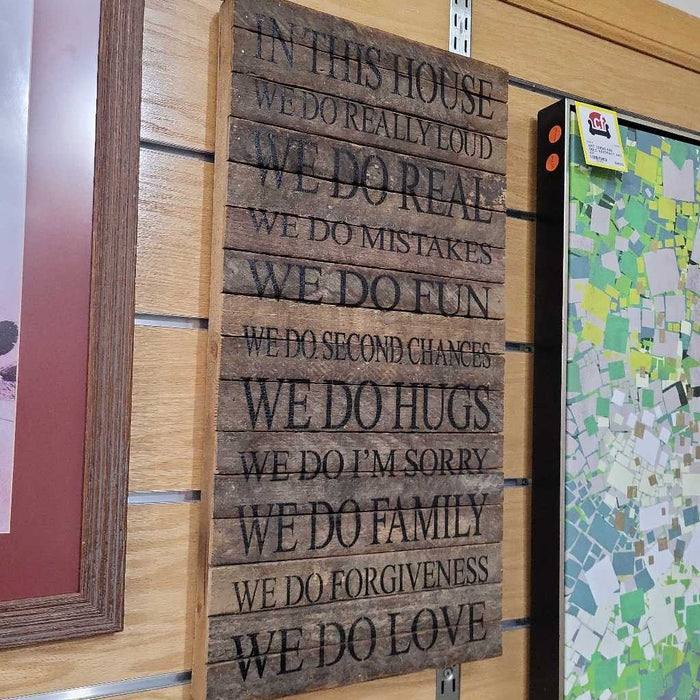 IN THIS HOUSE
WE DO REALLY LOUD
WE DO REAL
WE DO MISTAKES
WE DO FUN
WE DO SECOND CHANCES
WE DO HUGS
WE DO I'M SORRY
WE DO FAMILY
WE DO FORGIVENESS
WE DO LOVE